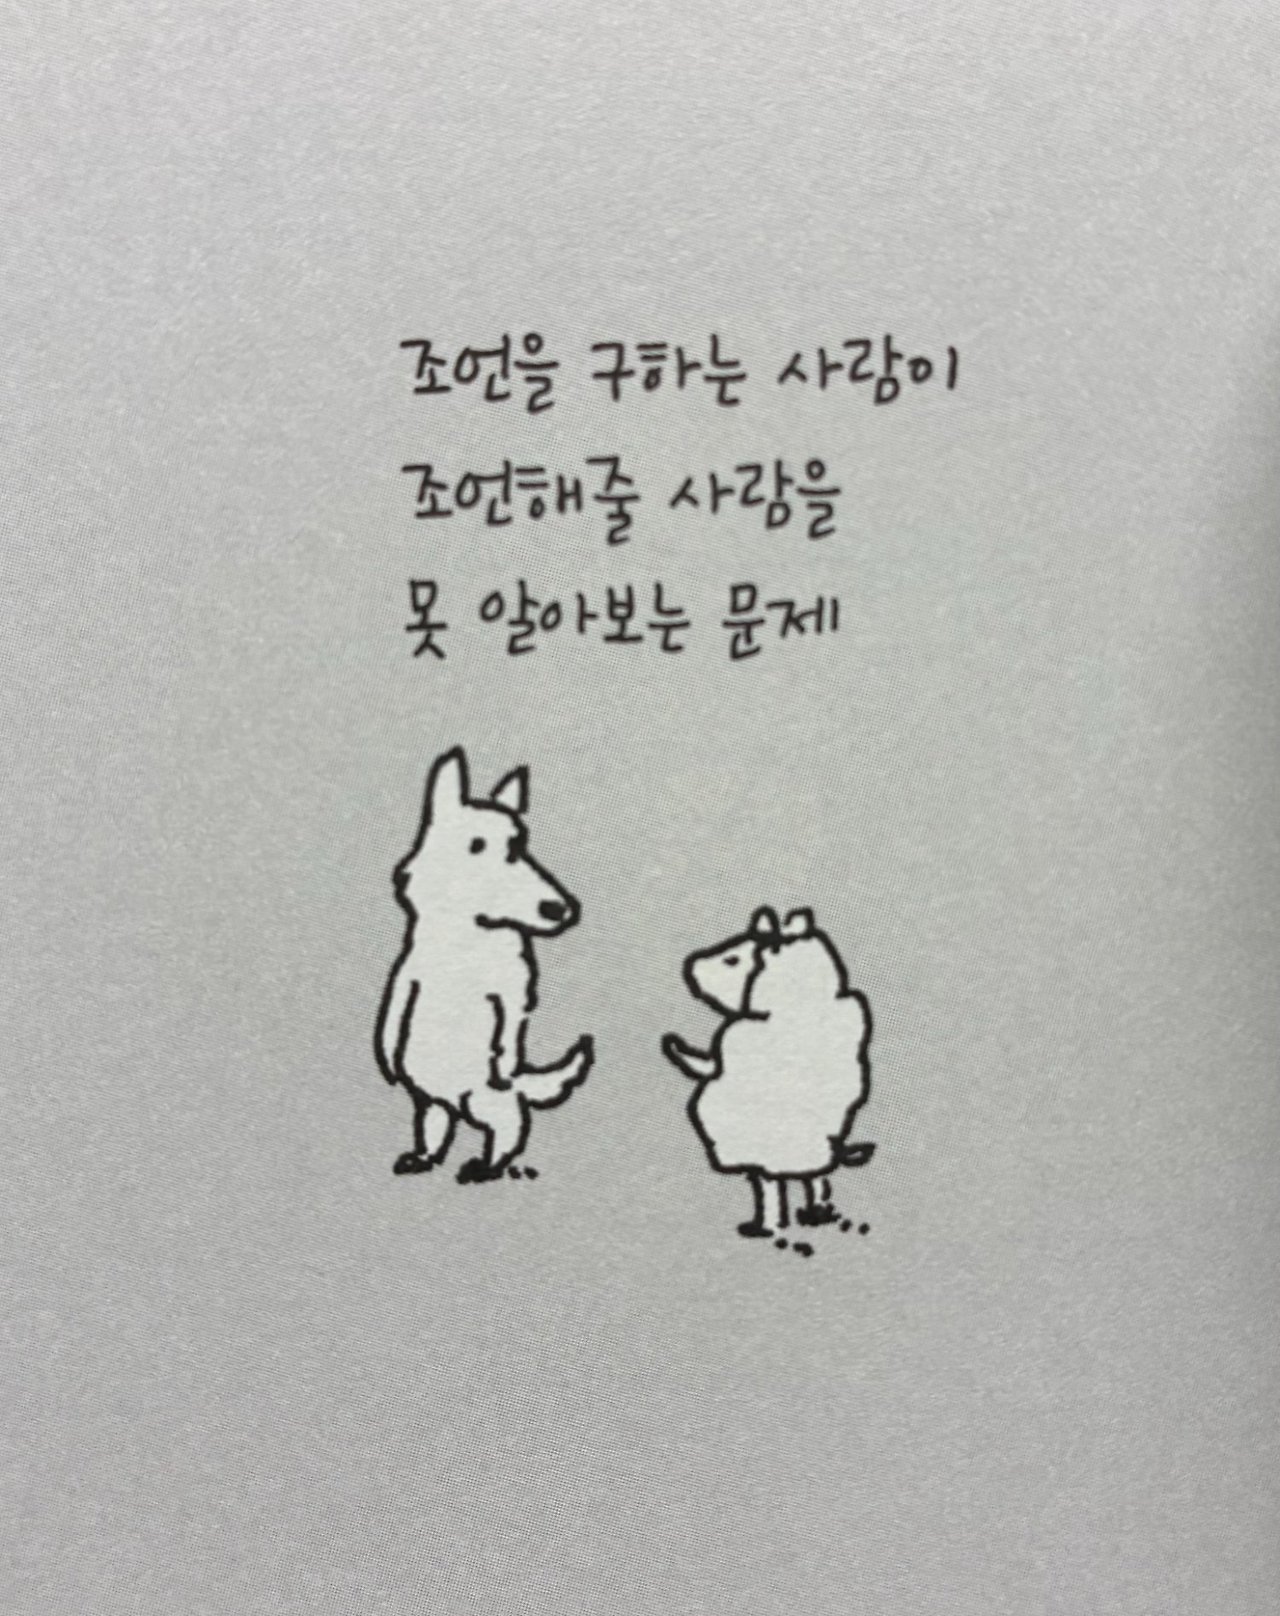 조언을 구하는 사람이
조언해줄 사람을
못 알아보는 문제